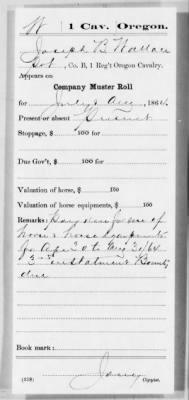 W | 1 Cav. | Oregon.
Joseph B. Wallace
Pvt., Co. B, 1 Reg't Oregon Cavalry.
Appears on
Company Muster Roll
for July & Aug, 1864.
Present or absent Present
Stoppage, $ 100 for
Due Gov't, $ 100 for
Valuation of horse, $ 100
Valuation of horse equipments, $ 100
Remarks: Pay due for use of
horse & horse equipments
fr Apr 30 to Aug 31/64
3rd instalment Bounty
due
Book mark:
(358)
Copyist.